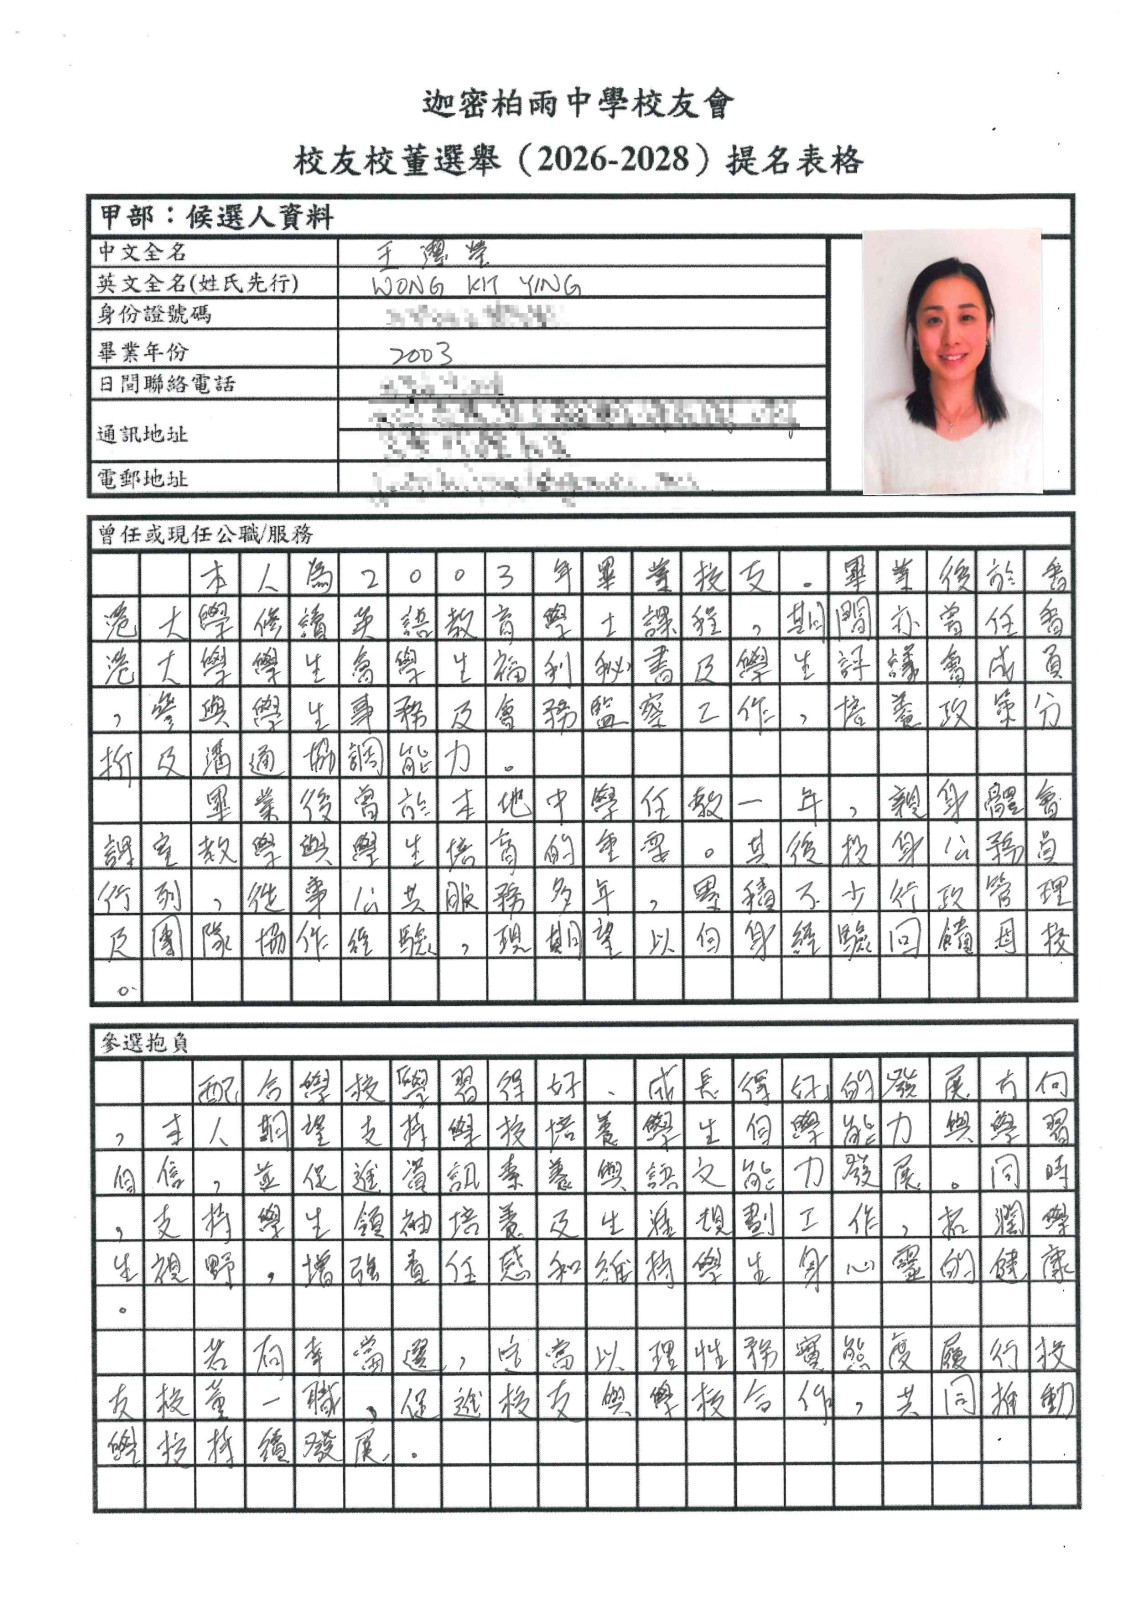 迦密柏雨中學校友會
校友校董選舉（2026-2028）提名表格
甲部：候選人資料
中文全名 王潔瑩
英文全名(姓氏先行) WONG KIT YING
身份證號碼
畢業年份 2003
日間聯絡電話
通訊地址
電郵地址
曾任或現任公職/服務
本人為2003年畢業校友。畢業後於香
港大學修讀英語教育學士課程，期間亦曾任香
港大學學生會學生福利秘書及學生評議會成員
，參與學生事務及會務監察工作，培養政策分
析及溝通協調能力。
畢業後曾於本地中學任教一年，親身體會
課室教學與學生培育的重要。其後投身公務員
行列，從事公共服務多年，累積不少行政管理
及團隊協作經驗，現期望以自身經驗回饋母校
。
參選抱負
配合學校學習得好、成長得好的發展方向
，本人期望支持學校培養學生自學能力與學習
自信，並促進資訊素養與語文能力發展。同時
，支持學生領袖培養及生涯規劃工作，拓濶學
生視野，增強責任感和維持學生身心靈的健康
。
若有幸當選，定當以理性務實態度履行校
友校董一職，促進校友與學校合作，共同推動
學校持續發展。